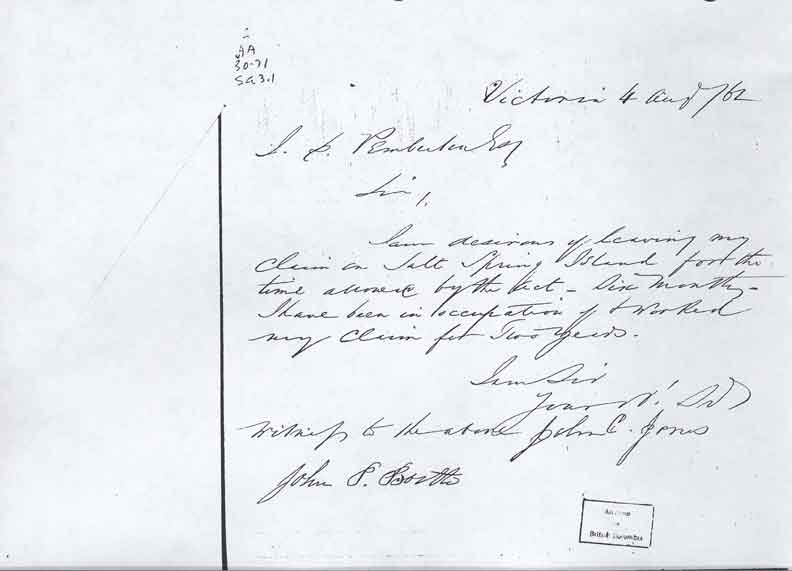 AA
30.71
SG3.1
Victoria 4 Augt /62
J. D. Pemberton Esq
Sir,
I am desirous of leaving my
Claim on Salt Spring Island for the
time allowed by the Act _ Six Months _
I have been in occupation of & worked
my Claim for Two Years.
I am Sir
Your
Witness to the above John C. Jones
John P. Booth
British Columbia